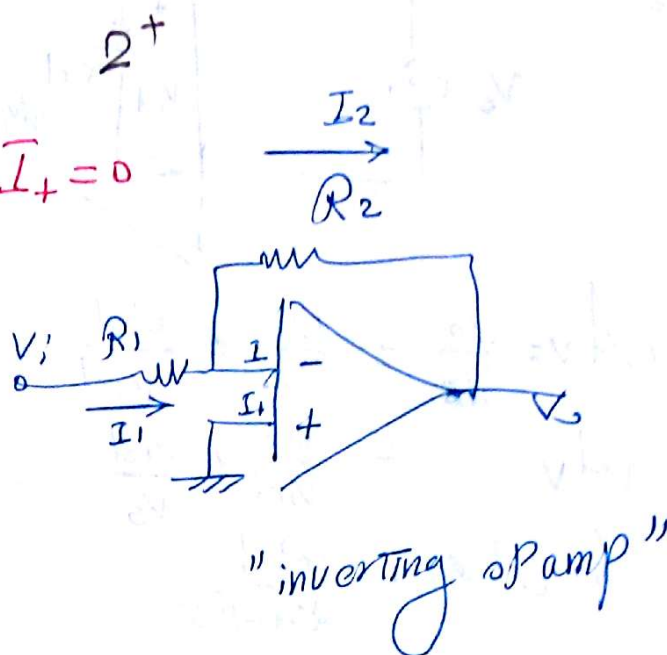 2⁺
I₊ = 0
I₂
R₂
Vᵢ R₁
I₁
I -
I₊ +
Vₒ
"inverting op amp"